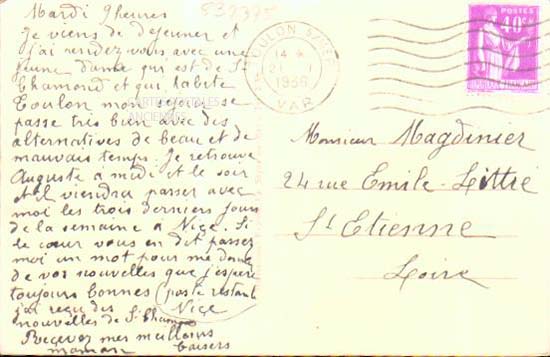 Mardi 9 heures
Je viens de dejeuner et
j'ai rendez vous avec une
jeune dame qui est de St
Chamond et qui habite
Toulon mon sejour se
passe très bien avec des
alternatives de beau et de
mauvais temps. Je retrouve
Auguste à midi et le soir
et il viendra passer avec
moi les trois derniers jours
de la semaine a Nice. Si
le cœur vous en dit passez
moi un mot pour me donner
de vos nouvelles que j'espère
toujours bonnes (poste restante
Nice
j'ai reçu des
nouvelles de St Chamond
Recevez mes meilleurs
baisers
maman
539375
TOULON
14
21 - 1
1936
VAR
POSTES
40c
Monsieur Magdinier
24 rue Emile-Littré
St Etienne
Loire